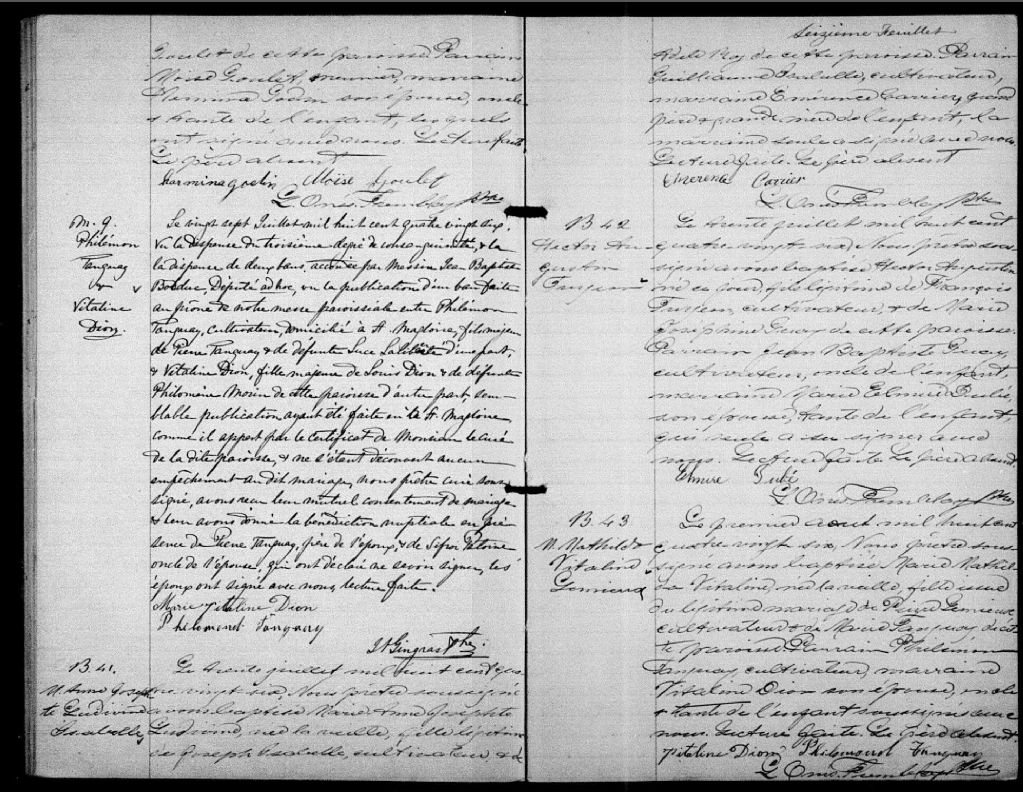 Goulet de cette paroisse Parrain
Moïse Goulet, meunier, marraine
Godin son épouse, oncle
& tante de l'enfant, lesquels
ont signé avec nous. Lecture faite
Le père absent
Moïse Goulet
L. Onés. Tremblay Ptre
M. 9.
Philémon
Tanguay
&
Vitaline
Dion.
Le vingt sept Juillet mil huit cent quatre vingt six,
vu la dispense du troisième degré de consanguinité, & la
la dispense de deux bans, accordée par Messire Jean Baptiste
Bolduc, Député ad hoc, vu la publication d'un ban faite
au prône de notre messe paroissiale entre Philémon
Tanguay, cultivateur, domicilié à St. Magloire, fils majeur
de Pierre Tanguay & de défunte Luce d'une part,
& Vitaline Dion, fille majeure de Louis Dion & de défunte
Philomène Morin de cette paroisse d'autre part, sem-
blable publication ayant été faite en le St. Magloire
comme il appert par le certificat de Monsieur le Curé
de la dite paroisse, & ne s'étant découvert aucun
empêchement au dit mariage, nous prêtre curé sous-
signé, avons reçu leur mutuel consentement de mariage
& leur avons donné la bénédiction nuptiale en pré-
sence de Pierre Tanguay, père de l'époux, & de
oncle de l'épouse, qui ont déclaré ne savoir signer, les
époux ont signé avec nous, lecture faite.
Marie Vitaline Dion
Philemond Tanguay
Gingras Ptre.
B 41.
M. Anne Joseph
te
Isabelle
Le trente juillet mil huit cent qua-
tre vingt six, Nous prêtre soussigné
avons baptisé Marie Anne Josephte
née la veille, fille légitime
de Joseph Isabelle, cultivateur & d'
Seizième Feuillet
Adèle Roy de cette paroisse. Parrain
Guillaume Isabelle, cultivateur,
marraine Emérence Carrier, grand
père & grande mère de l'enfant, la
marraine seule a signé avec nous.
Lecture faite. Le père absent
Emerence Carrier
L. Onés. Tremblay Ptre
B 42
Hector Au-
gustin
Le trente juillet mil huit cent
quatre vingt six, Nous prêtre sous-
signé avons baptisé Hector Augustin
né ce jour, fils légitime de François
cultivateur, & de Marie
Joséphine de cette paroisse.
Parrain Jean Baptiste
cultivateur, oncle de l'enfant,
marraine Marie Elmire Dubé,
son épouse, tante de l'enfant,
qui seule a su signer avec
nous. Lecture faite Le père absent.
Elmire Dubé
L. Onés. Tremblay Ptre
B. 43
M. Mathilde
Vitaline
Lemieux
Le premier août mil huit cent
quatre vingt six, Nous prêtre sous-
signé avons baptisé Marie Mathil-
de Vitaline, née la veille, fille issue
du légitime mariage de Lemieux
cultivateur & de Marie Tanguay de cet-
te paroisse Parrain Philémon
Tanguay, cultivateur, marraine
Vitaline Dion son épouse, oncle
& tante de l'enfant soussignés avec
nous. Lecture faite. Le père absent.
Vitaline Dion Philemond Tanguay
L. Onés. Tremblay Ptre